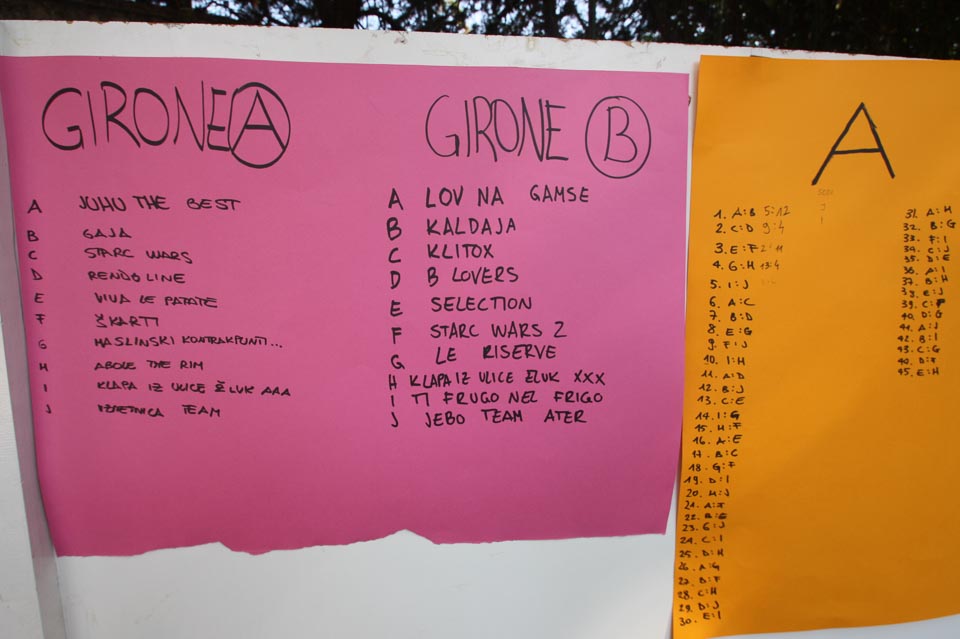 GIRONE A
A JUHU THE BEST
B GAJA
C STARC WARS
D RENDOLINE
E VIVA LE PATATE
F ŠKARTI
G MASLINSKI KONTRAKPUNTI...
H ABOVE THE RIM
I KLAPA IZ ULICE ŽLUK AAA
J TEAM
GIRONE B
A LOV NA GAMSE
B KALDAJA
C KLITOX
D B LOVERS
E SELECTION
F STARC WARS 2
G LE RISERVE
H KLAPA IZ ULICE ŽLUK XXX
I TI FRUGO NEL FRIGO
J JEBO TEAM ATER
A
1. A:B 5:12
2. C:D 9:4
3. E:F 2:11
4. G:H 13:4
5. I:J
6. A:C
7. B:D
8. E:G
9. F:J
10. I:H
11. A:D
12. B:J
13. C:E
14. I:G
15. H:F
16. A:E
17. B:C
18. G:F
19. D:I
20. H:J
21. A:F
22. B:E
23. G:J
24. C:I
25. D:H
26. A:G
27. B:F
28. C:H
29. D:J
30. E:I
31. A:H
32. B:G
33. F:I
34. C:J
35. D:E
36. A:I
37. B:H
E:J
39. C:F
40. D:G
41. A:J
42. B:I
43. C:G
D:F
45. E:H